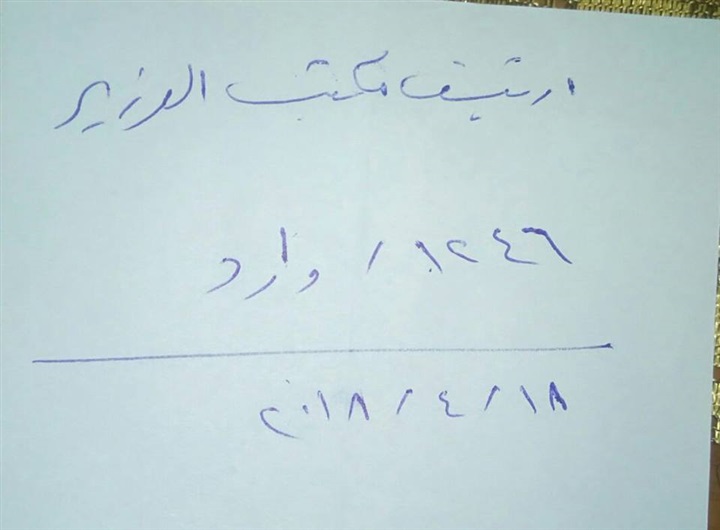 ارشيف مكتب الوزير
١٢٤٦ / وارد
٢٠١٨/٤/١٨